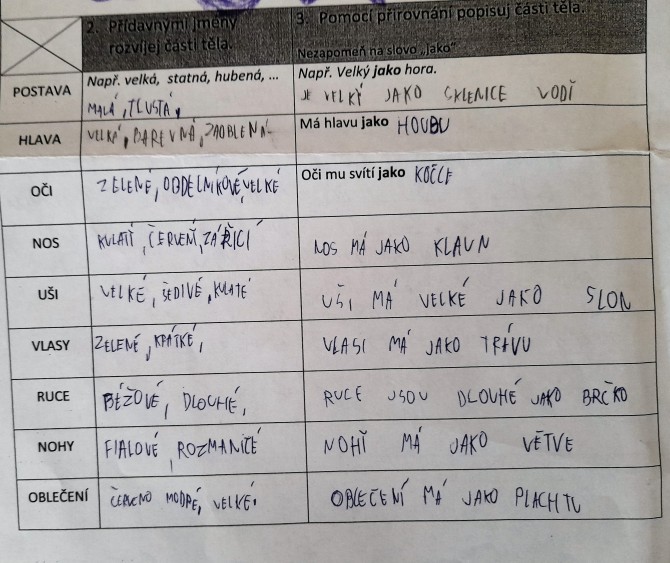 2. Přídavnými jmény
rozvíjej části těla.
3. Pomocí přirovnání popisuj části těla.
Nezapomeň na slovo „jako"
POSTAVA
Např. velká, statná, hubená, ...
MALÁ, TLUSTÁ,
Např. Velký jako hora.
JE VELKÝ JAKO SKLENICE VODÍ
HLAVA
VELKÁ, BAREVNÁ, ZAOBLENÁ
Má hlavu jako HOUBU
OČI
ZELENÉ, OBDELNÍKOVÉ, VELKÉ
Oči mu svítí jako KOČCE
NOS
KULATÍ, ČERVENÍ, ZÁŘÍCÍ
NOS MÁ JAKO KLAUN
UŠI
VELKÉ, ŠEDIVÉ, KULATÉ
UŠI MÁ VELKÉ JAKO SLON
VLASY
ZELENÉ, KRÁTKÉ,
VLASI MÁ JAKO TRÁVU
RUCE
BÉŽOVÉ, DLOUHÉ,
RUCE JSOU DLOUHÉ JAKO BRČKO
NOHY
FIALOVÉ, ROZMANITÉ
NOHI MÁ JAKO VĚTVE
OBLEČENÍ
ČERVENO MODRÉ, VELKÉ
OBLEČENÍ MÁ JAKO PLACHTU